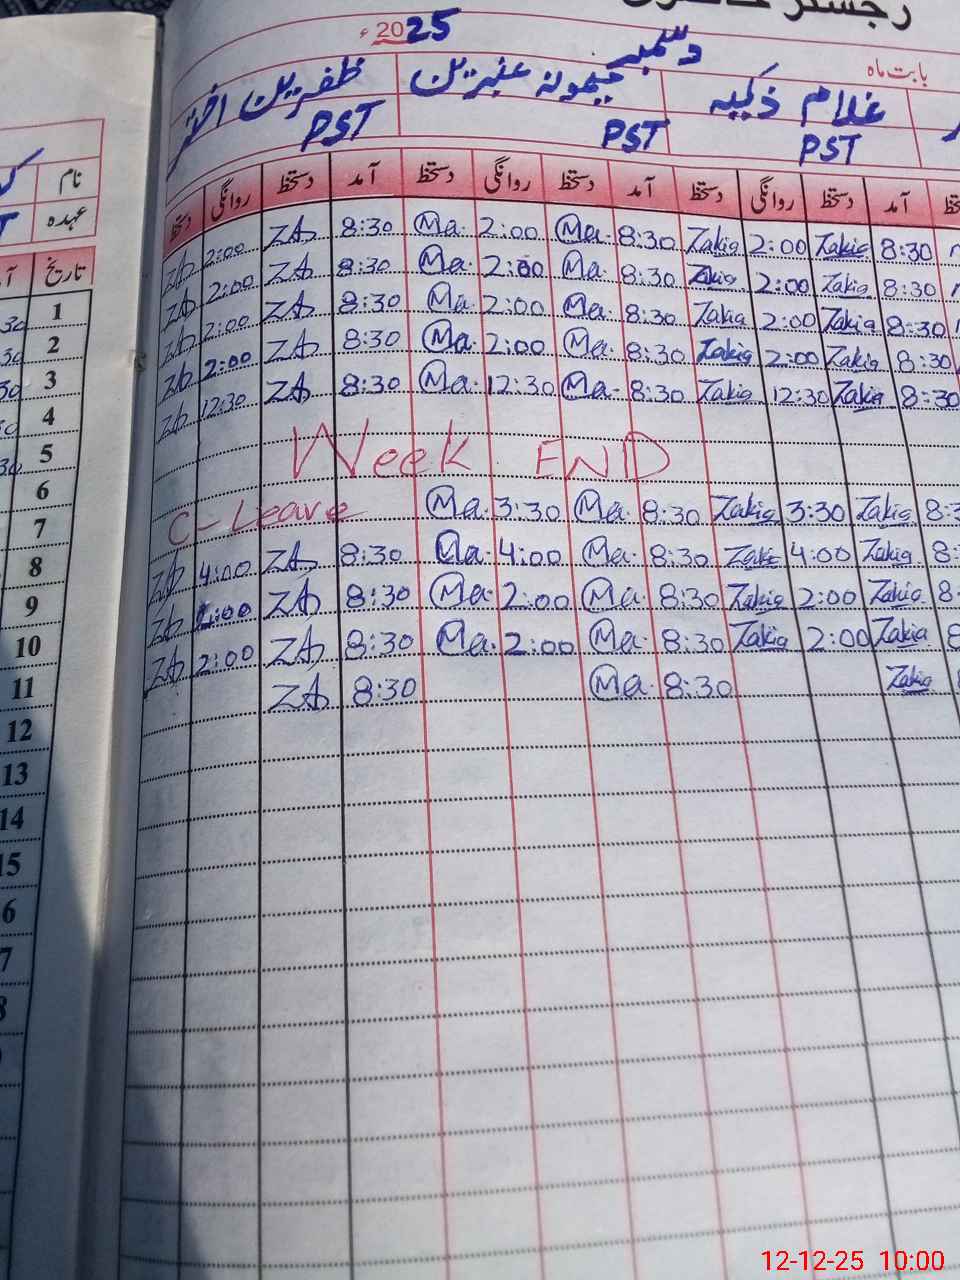 رجسٹر حاضری
بابت ماہ دسمبر 2025ء
غلام ذکیہ میمونہ عنبرین ظفرین اختر
PST PST PST
نام
عہدہ
آمد دستخط روانگی دستخط آمد دستخط روانگی دستخط آمد دستخط روانگی دستخط
تاریخ
ZA 2:00 ZA 8:30 Ma. 2:00 Ma. 8:30 Zakia 2:00 Zakia 8:30
ZA 2:00 ZA 8:30 Ma. 2:00 Ma. 8:30 Zakia 2:00 Zakia 8:30
ZA 2:00 ZA 8:30 Ma. 2:00 Ma. 8:30 Zakia 2:00 Zakia 8:30
ZA 2:00 ZA 8:30 Ma. 2:00 Ma. 8:30 Zakia 2:00 Zakia 8:30
ZA 12:30 ZA 8:30 Ma. 12:30 Ma. 8:30 Zakia 12:30 Zakia 8:30
Week END
C-Leave Ma. 3:30 Ma. 8:30 Zakia 3:30 Zakia
ZA 4:00 ZA 8:30 Ma. 4:00 Ma. 8:30 Zakia 4:00 Zakia
ZA 2:00 ZA 8:30 Ma. 2:00 Ma. 8:30 Zakia 2:00 Zakia
ZA 2:00 ZA 8:30 Ma. 2:00 Ma. 8:30 Zakia 2:00 Zakia
ZA 8:30 Ma. 8:30 Zakia
1
2
3
4
5
6
7
8
9
10
11
12
13
14
15
12-12-25 10:00